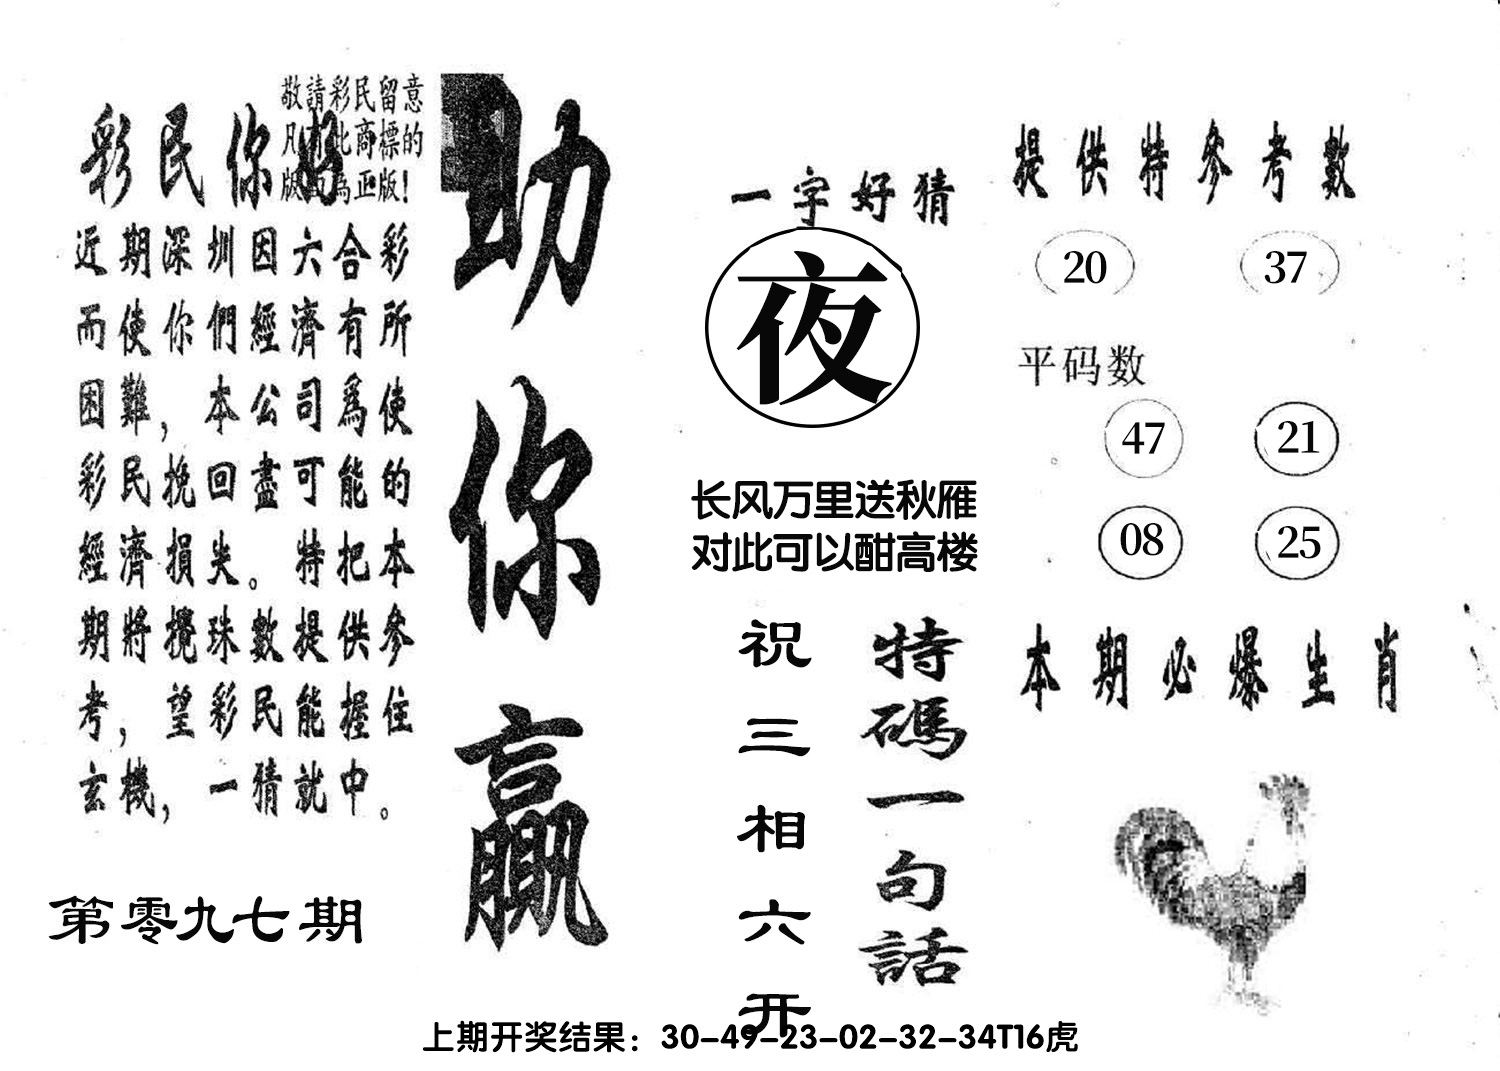 敬請彩民留意
凡有此商標的
版面為正版！
彩民你好
近期深圳因六合彩
而使你們經濟有所
困難，本公司爲使
彩民挽回盡可能的
經濟損失。特把本
期將攪珠數提供參
考，望彩民能握住
玄機，一猜就中。
第零九七期
助你赢
一字好猜
夜
长风万里送秋雁
对此可以酣高楼
特碼一句話
祝三相六开
提供特參考數
20 37
平码数
47 21
08 25
本期必爆生肖
上期开奖结果：30-49-23-02-32-34T16虎